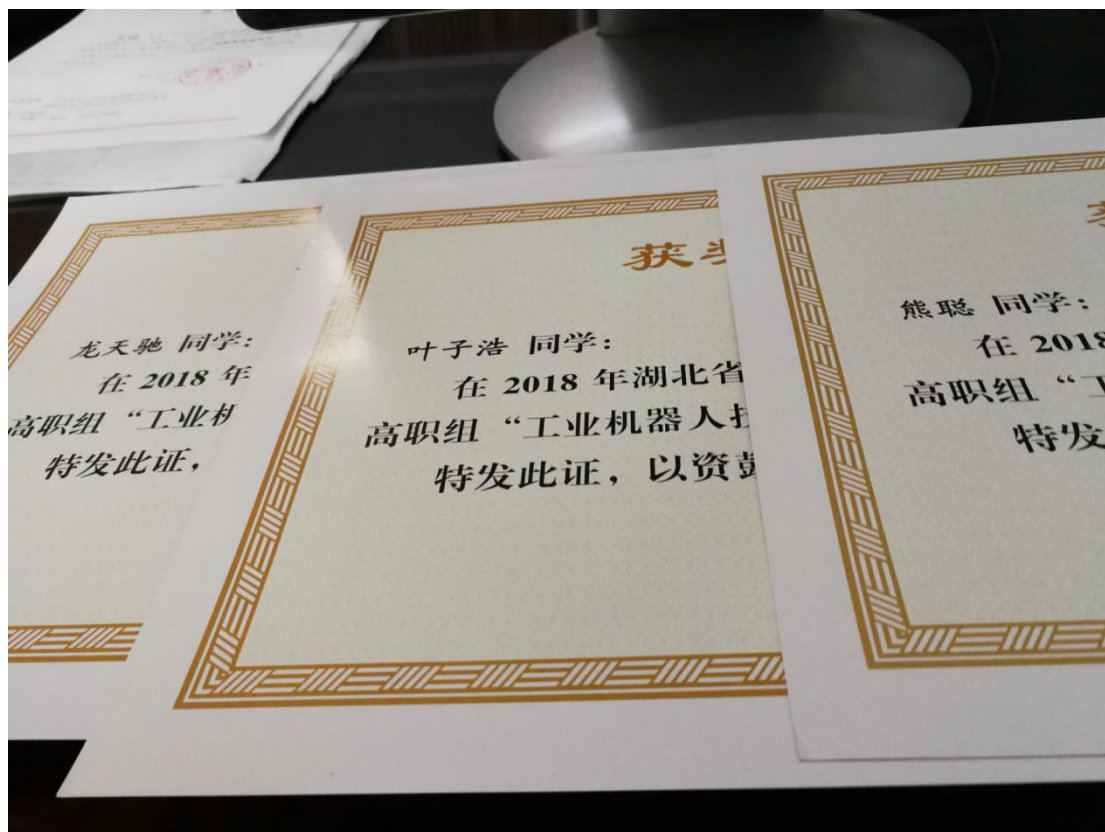 龙天驰 同学：
在 2018 年
高职组“工业机
特发此证，
获奖
叶子浩 同学：
在 2018 年湖北省
高职组“工业机器人技
特发此证，以资
熊聪 同学：
在 2018
高职组“工
特发